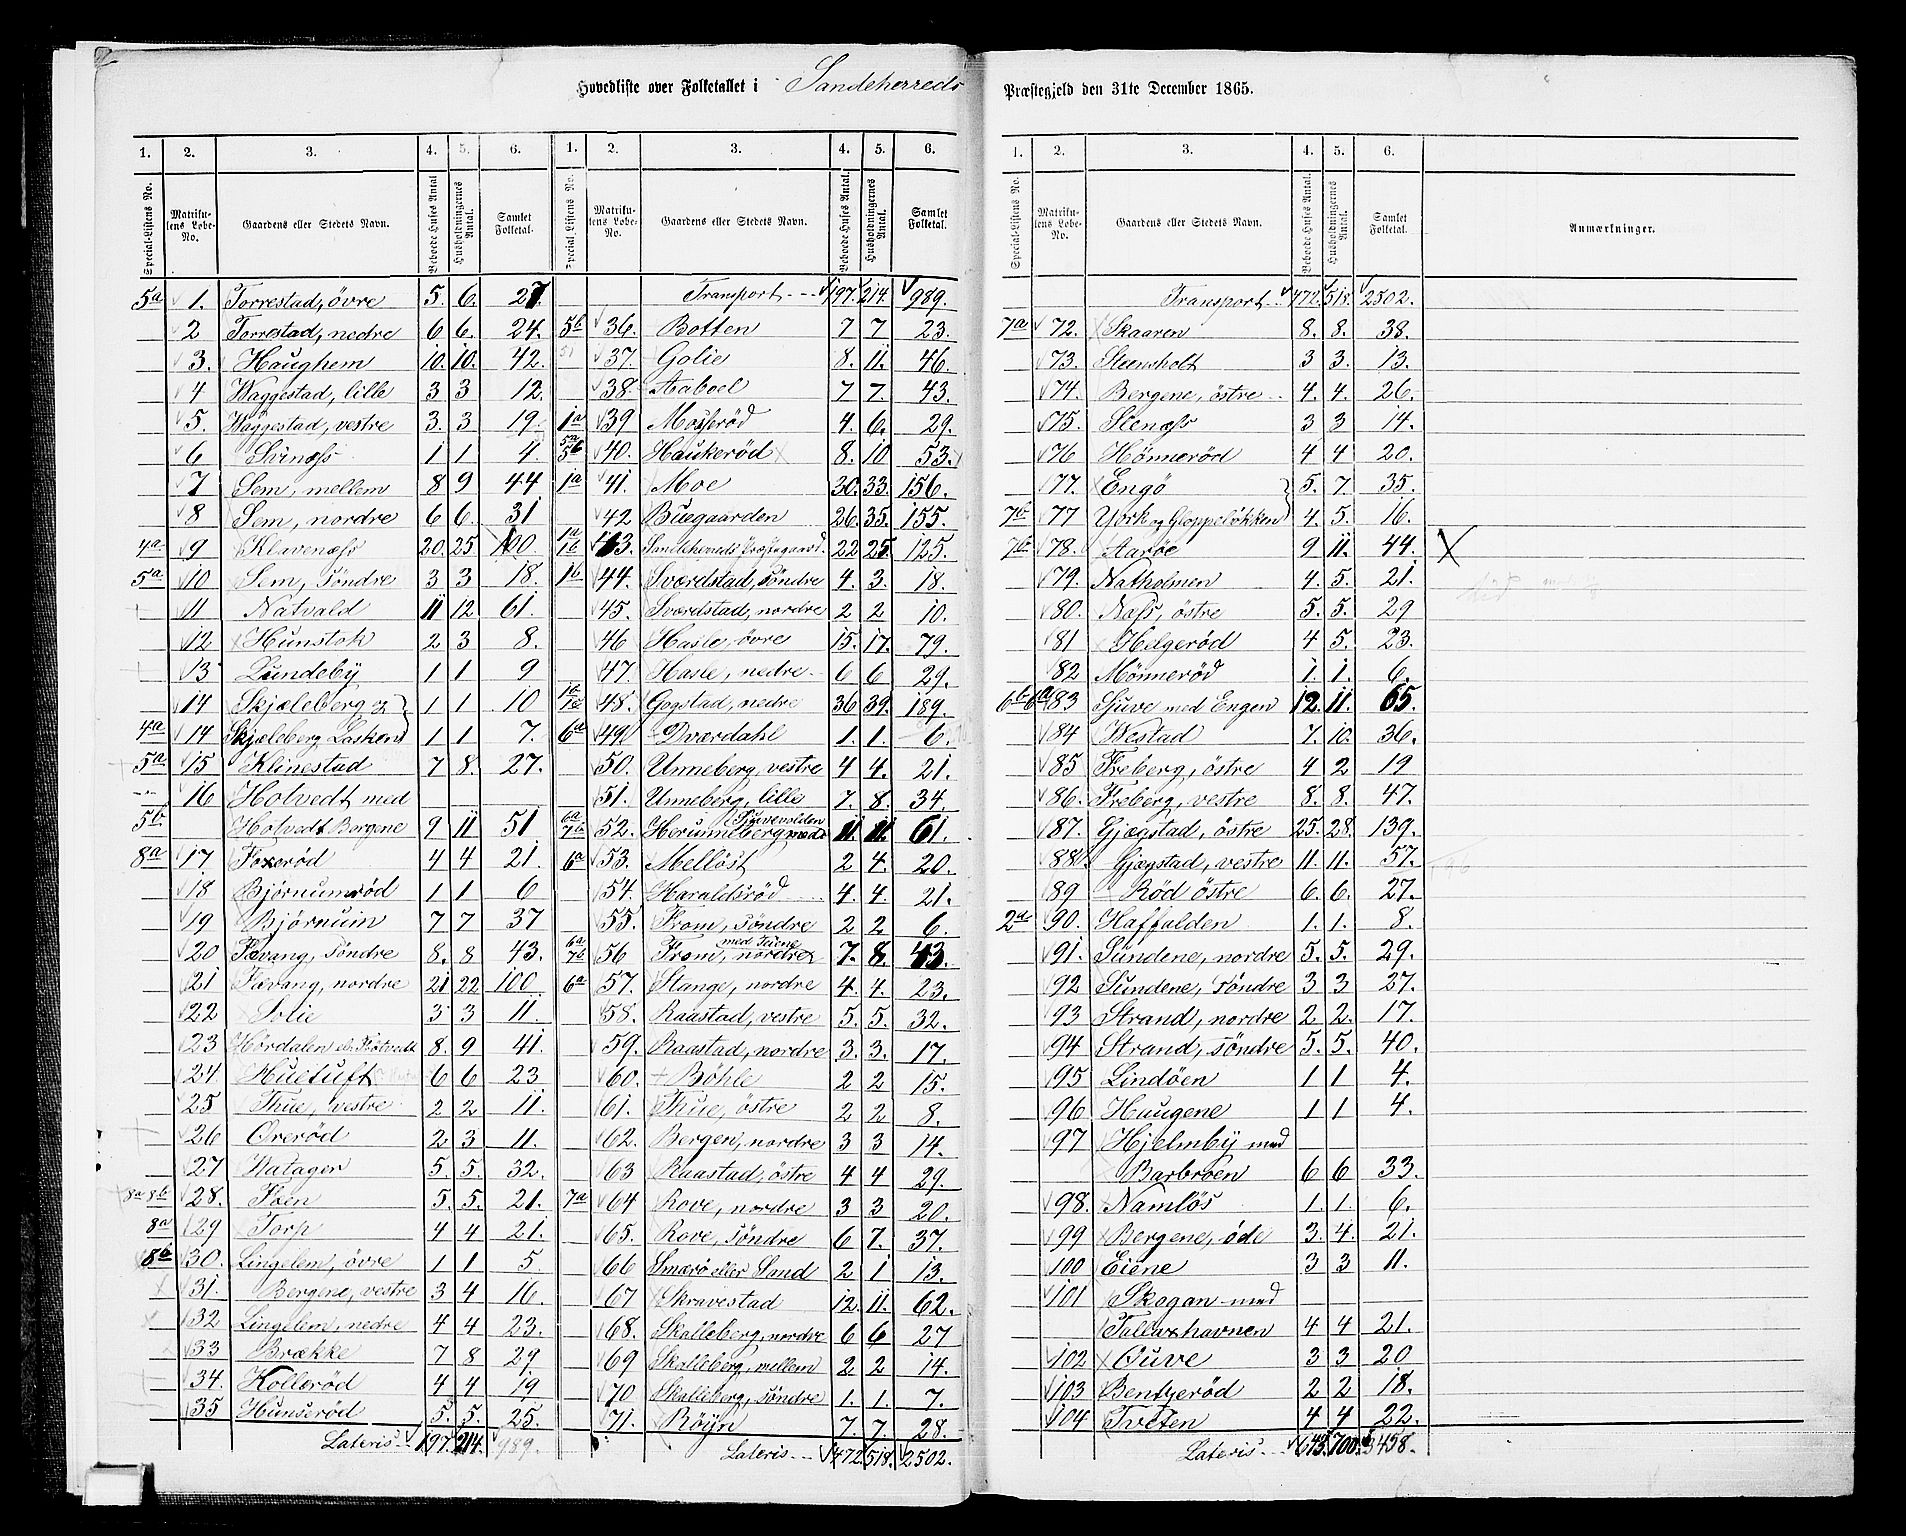 Hovedliste over Folketallet i Sandeherreds Præstegjeld den 31te December 1865.
1. 2. 3. 4. 5. 6. 1. 2. 3. 4. 5. 6.
Special-Listens No. Matrikulens Løbe-No. Gaardens eller Stedets Navn. Beboede Huses Antal Husholdningernes Antal. Samlet Folketal. Special Listens No. Matrikulens Løbe-No. Gaardens eller Stedets Navn. Beboede Huses Antal. Husholdningernes Antal. Samlet Folketal.
5a 1. Torrestad, övre 5. 6. 27
2 Torrestad, nedre 6 6. 24.
3. Haughem 10. 10. 42.
4 Waggestad, lille 3 3 12.
5. Waggestad, vestre 3. 3 19.
6 Svinæss 1 1 4.
7 Sem, mellem 8 9 44
8 Sem, nordre 6 6. 31
4a 9 Klavenæss 20. 25 100.
5a 10 Sem, söndre 3 3 18.
11 Natvald 11 12 61.
12 Hunstok 2 3 8.
13 Lundeby 1 1 9
14 Skjæleberg og 1 1 10
4a 14 Skjæleberg Løsken 1 1 7.
5a 15 Klinestad 7 8. 27.
16 Holvedt med
5b Holvedt Bergene 9 11 51
8a 17. Foxerød 4 4 21.
18 Bjørnumrød 1 1 6
19 Bjørnum 7 7 37
20 Fævang, söndre 8. 8 43.
21 Fævang, nordre 21 22 100
22 Solie 3 3 11.
23 Hørdalen 8. 9 41.
24. Huetuft 6 6 23
25 Thue, vestre 2 2 11.
26 Ørerød 2 3 11.
27 Watager 5. 5. 32.
8a 8b 28. Foen 5. 5. 21.
8a 29 Torp 4 4 21.
8b 30. Lingelem, övre 1 1 5
31. Bergene, vestre 3 4 16.
32 Lingelem, nedre 4 4 23.
33 Brække 7 8 29
34. Hollerød 4 4 19
35 Hunserød 5. 5. 25.
Lateris 197 214. 989.
Transport 197. 214. 989.
5b 36. Botten 7 7 23.
37. Golie 8. 11. 46.
38. Aaboel 7 7. 43.
1a 39 Mosserød 4. 6. 29.
5a 5b 40. Haukerød 8. 10 53.
1a 41. Moe 30. 33. 156.
42 Buegaarden 26. 35. 155.
1a 1b 43. Sandeherreds Præstegaard 22 25. 125.
1b 44. Sværdstad, söndre 4. 3. 18.
45. Sværdstad, nordre 2 2 10.
46 Hasle, övre 15. 17. 79.
47. Hasle, nedre 6 6 29.
48. Gogstad, nedre 36 39. 189.
6a 49 Dværdahl 1. 1. 6.
50. Unneberg, vestre 4 4. 21.
51. Unneberg, lille 7. 8. 34.
6a 7b 52. Horunneberg med 11. 11. 61.
6a 53. Mellöst 2 4. 20.
54. Haraldsrød 4. 4. 21.
55. From, söndre 2 2 6.
6a 7b 56 From, nordre med Teiene 7. 8. 43.
6a 57. Stange, nordre 4. 4. 23.
58. Raastad, vestre 5. 5. 32.
59. Raastad, nordre 3. 3. 17.
60. Böhle 2 2 15.
61. Thue, östre 2 2 8.
62. Bergen, nordre 3 3 14.
63 Raastad, östre 4 4 29.
7a 64 Rove, nordre 3 3 20.
65. Rove, söndre 6 7. 37.
66 Smærö eller Sand 2 1 13.
67 Skravestad 12. 11. 62.
68. Skalleberg, nordre 6 6 27
69 Skalleberg, mellem 2 2 14.
70. Skalleberg, söndre 1. 1. 7.
71. Röijn 7. 7. 28.
Lateris 472 518. 2502.
1. 2. 3. 4. 5. 6.
Special-Listens No. Matrikulens Løbe-No. Gaardens eller Stedets Navn. Beboede Huses Antal. Husholdningernes Antal. Samlet Folketal. Anmærkninger.
Transport 472. 518. 2502.
7a 72. Skaaren 8. 8. 38.
73. Steensholt 3 3. 13.
74. Bergene, östre 4. 4. 26.
75. Stenæss 3 3 14.
76 Hönnerød 4 4 20.
77. Engö 5. 7. 35.
7b 77 York og Gloppeløkken 4. 5. 16.
7b 78. Aaröe 9 11. 44. X
79. Natholmen 4. 5. 21.
80. Næss, östre 5. 5. 29
81 Helgerød 4 5. 23.
82 Mönnerød 1. 1. 6.
6b 6a 83 Tjuve med Engen 12. 11. 65.
84 Westad 7. 10. 36.
85 Freberg, östre 4 2 19
86. Freberg, vestre 8. 8. 47.
87. Gjøgstad, östre 25. 28. 139.
88 Gjøgstad, vestre 11. 11. 57.
89 Rød östre 6. 6. 27.
2a 90. Haffalden 1. 1. 8.
91. Sundene, nordre 5. 5. 29.
92 Sundene, söndre 3 3 27.
93 Strand, nordre 2 2. 17.
94 Strand, söndre 5. 5. 40.
95 Lindöen 1 1 4.
96 Haugene 1 1 4.
97 Hjelmby med
Barbroen 6 6 33.
98. Namlös 1. 1. 6.
99 Bergene, öde 3. 4. 21.
100 Eiene 3 3 11.
101 Skogan med
Tallaxhavnen 4 4 21.
102 Ouve 3 3 20
103 Bentzerød 2 2 18.
104 Tveten 4 4 22.
Lateris 643. 700. 3458.